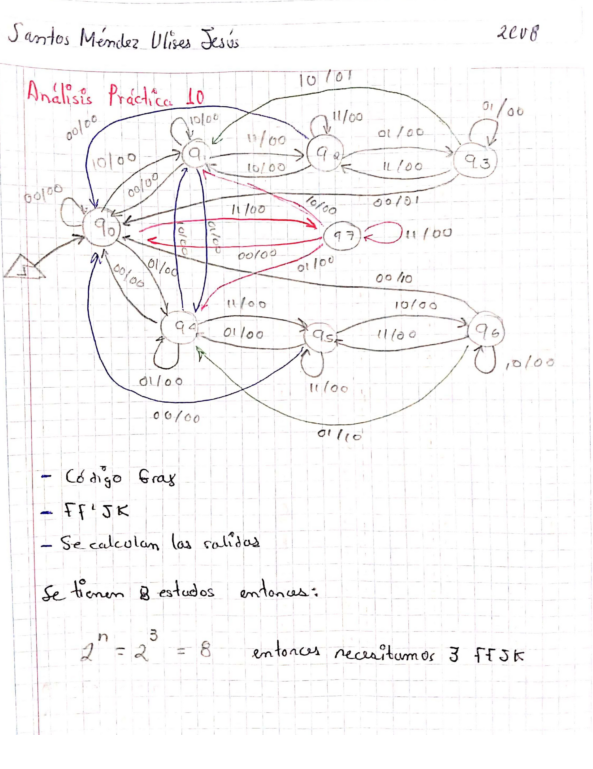 Santos Méndez Ulises Jesús
2CV8
Análisis Práctica 10
10/01
00/00
10/00
11/00
01/00
11/00
01/00
10/00
q1
q2
q3
10/00
11/00
00/00
00/00
10/00
00/01
q0
11/00
q7
11/00
00/00
10/00
01/00
01/00
00/00
01/00
00/10
q4
11/00
10/00
01/00
q5
11/00
q6
01/00
11/00
10/00
00/00
01/10
- Código Gray
- FF'JK
- Se calculan las salidas
Se tienen 8 estados entonces:
2^n = 2^3 = 8 entonces necesitamos 3 FFJK